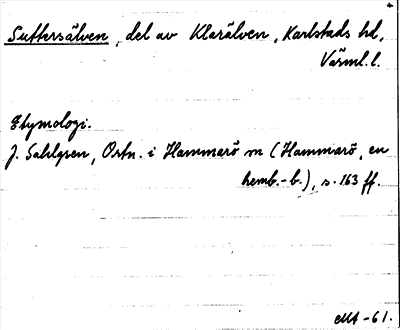 Suttersälven, del av Klarälven, Karlstads hd,
Värml. l.
Etymologi.
J. Sahlgren, Ortn. i Hammarö sn (Hammarö, en
hemb.-b.), s. 163 ff.
-61.